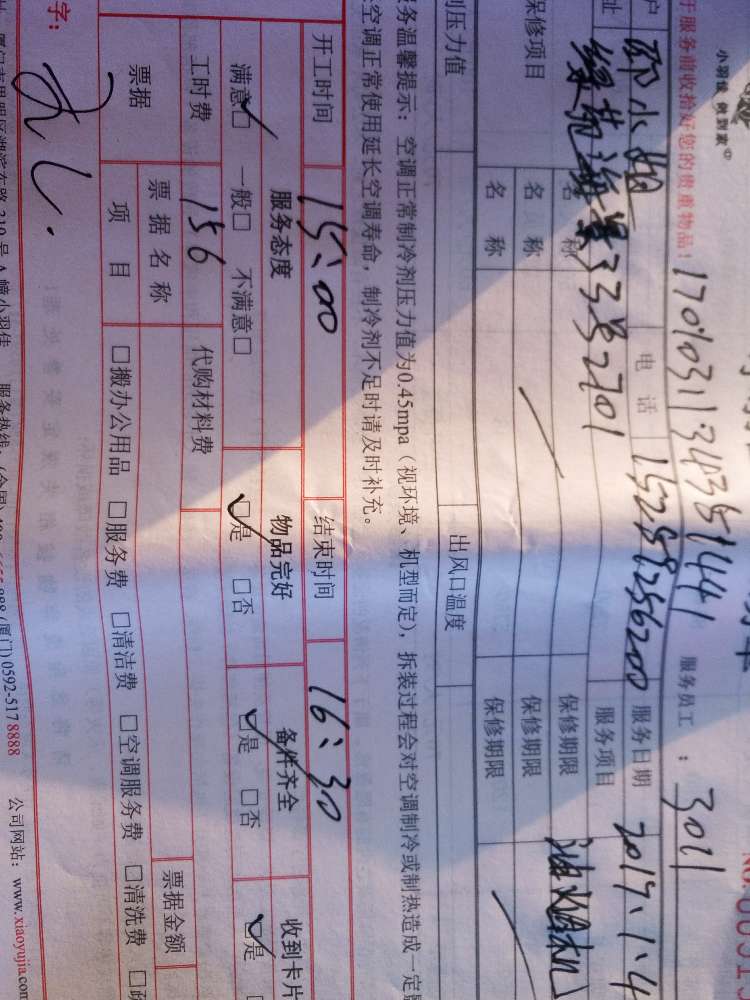 小羽佳
于服务前收拾好您的贵重物品！ 服务员工：3011
户 邵小姐 电话 15259256200 服务日期 2017.1.4
址 绿苑海景33号2701 服务项目 油烟机
保修项目 名称 保修期限
名称 保修期限
名称 保修期限
剂压力值 出风口温度
务温馨提示：空调正常制冷剂压力值为0.45mpa（视环境、机型而定），拆装过程会对空调制冷或制热造成一定
空调正常使用延长空调寿命，制冷剂不足时请及时补充。
开工时间 15:00 结束时间 16:30
服务态度 物品完好 备件齐全 收到卡片
满意☑ 一般□ 不满意□ ☑是 □否 ☑是 □否 ☑是
工时费 156 代购材料费
票据 票据名称 票据金额
项目 □搬办公用品 □服务费 □清洁费 □空调服务费 □清洗费
字：
服务热线：(全国) (厦门) 0592-5178888 公司网站：www.xiaoyujia.com